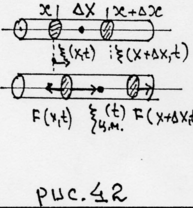 x Δx x+Δx
ξ(x,t) ξ(x+Δx,t)
F(x,t) ξ(t) F(x+Δx,t)
ц.м.
рис.42